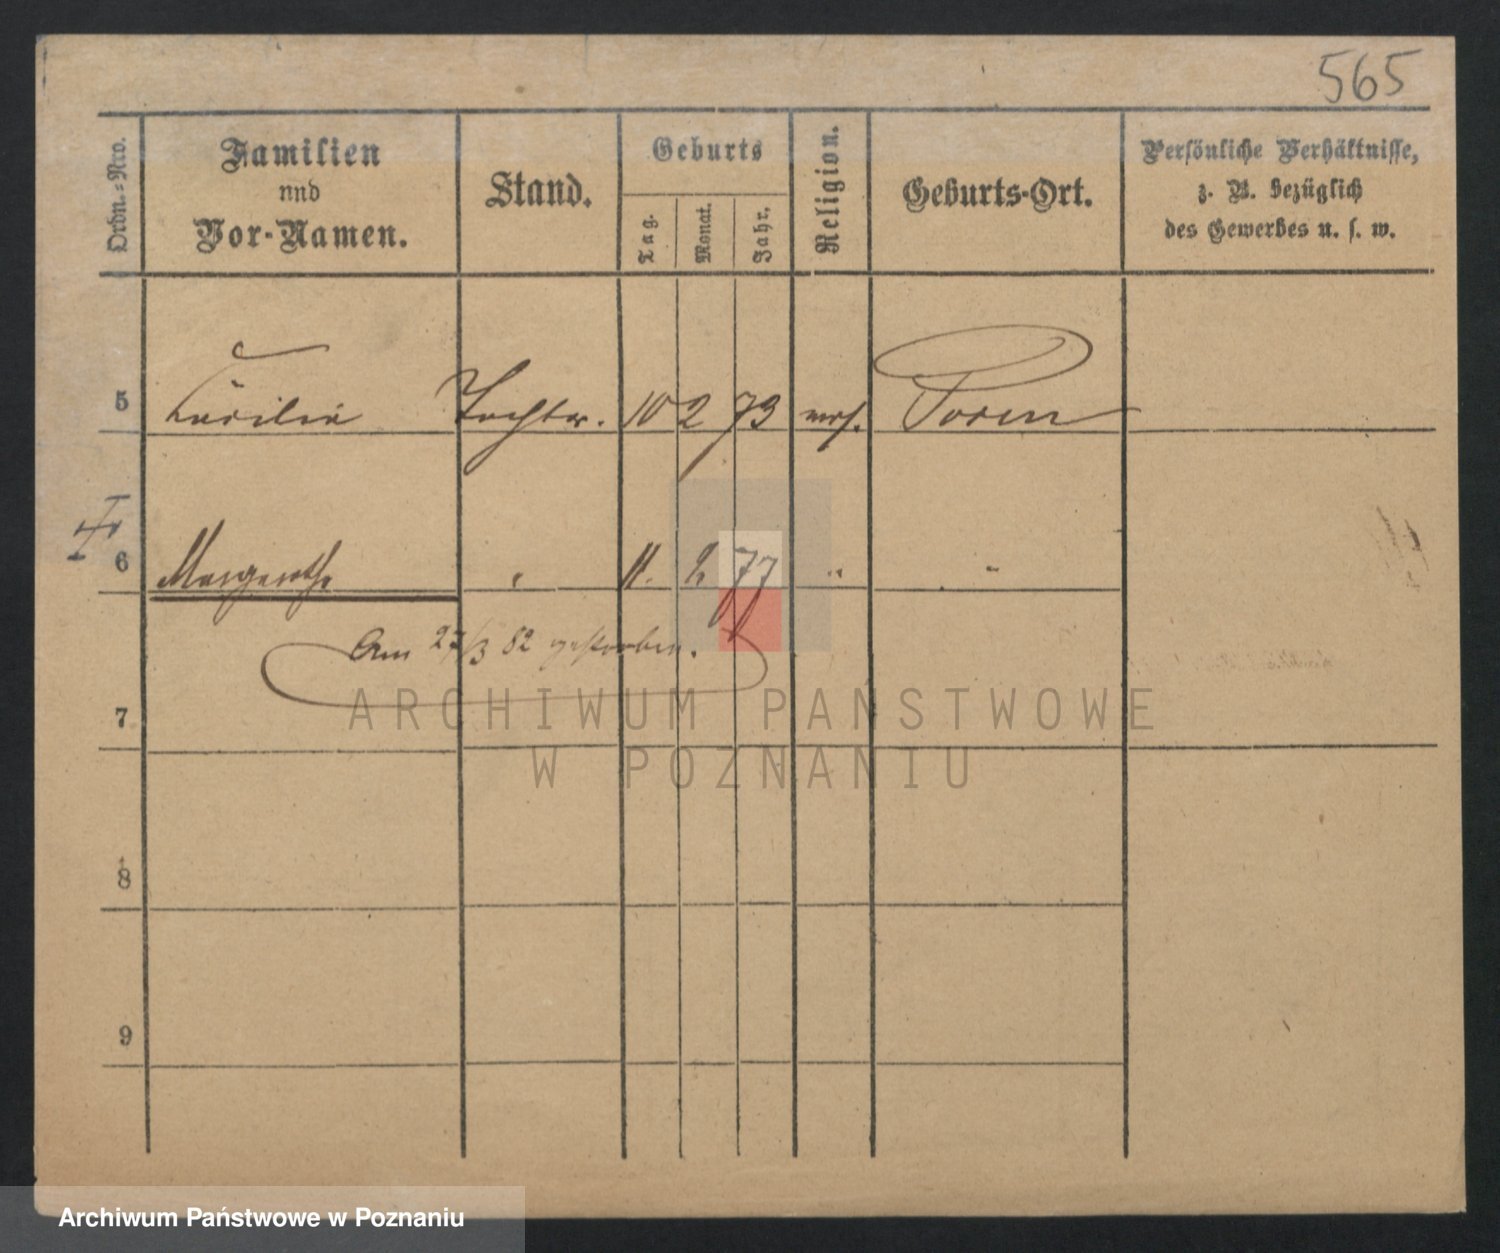 565
Ordn.-Nro.
Familien
und
Vor-Namen.
Stand.
Geburts
Tag.
Monat.
Jahr.
Religion.
Geburts-Ort.
Persönliche Verhältnisse,
z. B. bezüglich
des Gewerbes u. s. w.
5 Cäcilie Tochter. 10 2 73 mos. Posen
6 Margarethe " 11. 2. 77 " "
Am 27/3 82 gestorben.
7
8
9
ARCHIWUM PAŃSTWOWE
W POZNANIU
Archiwum Państwowe w Poznaniu